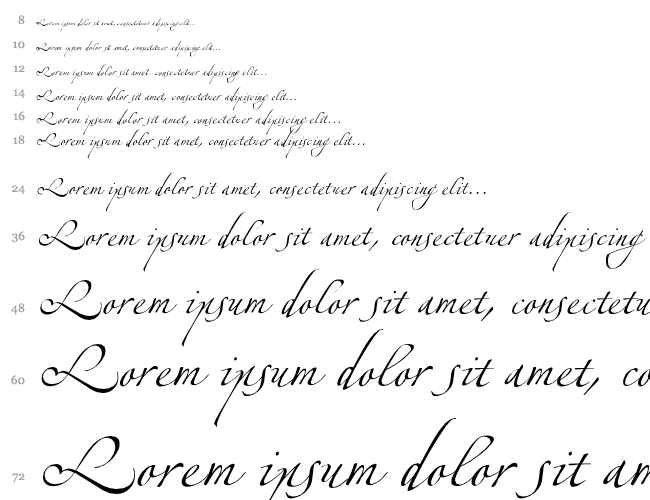 8 Lorem ipsum dolor sit amet, consectetuer adipiscing elit...
10 Lorem ipsum dolor sit amet, consectetuer adipiscing elit...
12 Lorem ipsum dolor sit amet, consectetuer adipiscing elit...
14 Lorem ipsum dolor sit amet, consectetuer adipiscing elit...
16 Lorem ipsum dolor sit amet, consectetuer adipiscing elit...
18 Lorem ipsum dolor sit amet, consectetuer adipiscing elit...
24 Lorem ipsum dolor sit amet, consectetuer adipiscing elit...
36 Lorem ipsum dolor sit amet, consectetuer adipiscing
48 Lorem ipsum dolor sit amet, consectetu
60 Lorem ipsum dolor sit amet, co
72 Lorem ipsum dolor sit am